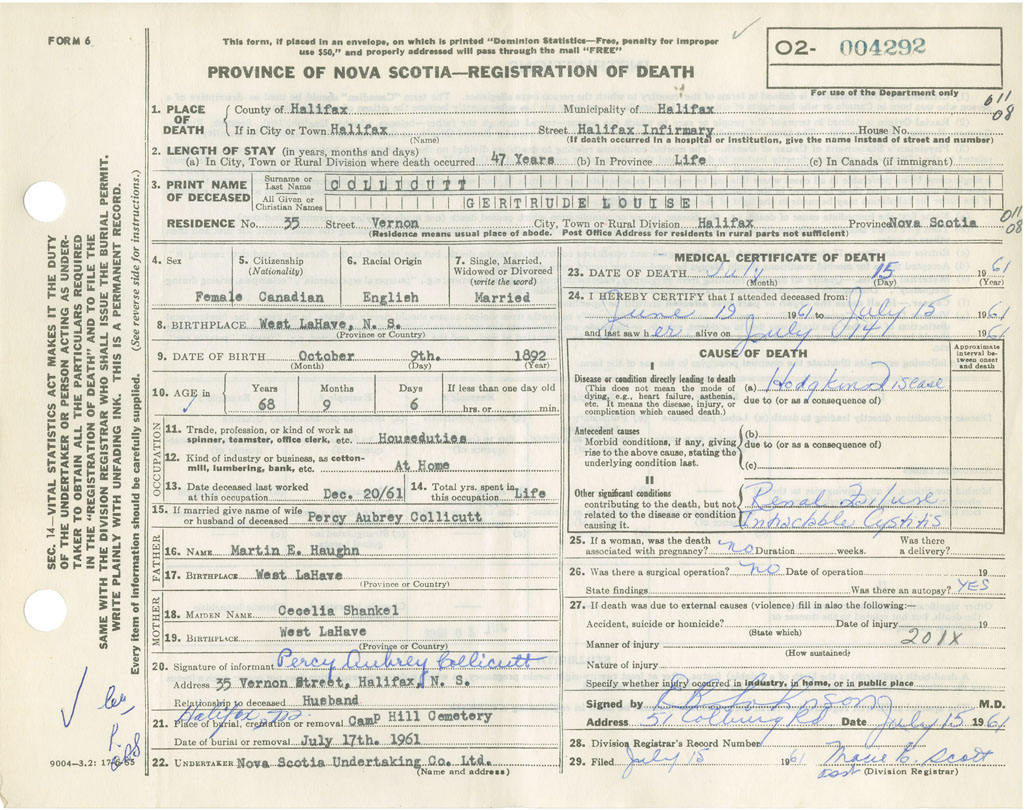 FORM 6
This form, if placed in an envelope, on which is printed "Dominion Statistics—Free, penalty for improper
use $50," and properly addressed will pass through the mail "FREE"
02- 004292
For use of the Department only
PROVINCE OF NOVA SCOTIA—REGISTRATION OF DEATH
011
08
1. PLACE OF DEATH
County of Halifax Municipality of Halifax
If in City or Town Halifax Street Halifax Infirmary House No.
(Name) (If death occurred in a hospital or institution, give the name instead of street and number)
2. LENGTH OF STAY (in years, months and days)
(a) In City, Town or Rural Division where death occurred 47 Years (b) In Province Life (c) In Canada (if immigrant)
3. PRINT NAME OF DECEASED
Surname or Last Name COLLICUTT
All Given or Christian Names GERTRUDE LOUISE
RESIDENCE No. 35 Street Vernon City, Town or Rural Division Halifax Province Nova Scotia
(Residence means usual place of abode. Post Office Address for residents in rural parts not sufficient)
011
08
4. Sex
Female
5. Citizenship (Nationality)
Canadian
6. Racial Origin
English
7. Single, Married, Widowed or Divorced (write the word)
Married
8. BIRTHPLACE West LaHave, N. S.
(Province or Country)
9. DATE OF BIRTH October 9th. 1892
(Month) (Day) (Year)
10. AGE in Years Months Days If less than one day old
68 9 6 hrs. or min.
OCCUPATION
11. Trade, profession, or kind of work as spinner, teamster, office clerk, etc. Houseduties
12. Kind of industry or business, as cotton-mill, lumbering, bank, etc. At Home
13. Date deceased last worked at this occupation Dec. 20/61 14. Total yrs. spent in this occupation Life
15. If married give name of wife or husband of deceased Percy Aubrey Collicutt
FATHER
16. NAME Martin E. Haughn
17. BIRTHPLACE West LaHave
(Province or Country)
MOTHER
18. MAIDEN NAME Cecelia Shankel
19. BIRTHPLACE West LaHave
(Province or Country)
20. Signature of informant Percy Aubrey Collicutt
Address 35 Vernon Street, Halifax, N. S.
Relationship to deceased Husband
Halifax, NS.
21. Place of burial, cremation or removal Camp Hill Cemetery
Date of burial or removal July 17th. 1961
22. UNDERTAKER Nova Scotia Undertaking Co. Ltd.
(Name and address)
MEDICAL CERTIFICATE OF DEATH
23. DATE OF DEATH July 15 1961
(Month) (Day) (Year)
24. I HEREBY CERTIFY that I attended deceased from:
June 19 1961 to July 15 1961
and last saw her alive on July 14 1961
CAUSE OF DEATH
Approximate interval between onset and death
I
Disease or condition directly leading to death
(This does not mean the mode of dying, e.g., heart failure, asthenia, etc. It means the disease, injury, or complication which caused death.)
(a) Hodgkins Disease
due to (or as a consequence of)
Antecedent causes
Morbid conditions, if any, giving rise to the above cause, stating the underlying condition last.
(b)
due to (or as a consequence of)
(c)
II
Other significant conditions contributing to the death, but not related to the disease or condition causing it.
Renal Failure
Intractable Cystitis
25. If a woman, was the death associated with pregnancy? no Duration weeks. Was there a delivery?
26. Was there a surgical operation? no Date of operation 19
State findings Was there an autopsy? YES
27. If death was due to external causes (violence) fill in also the following:—
Accident, suicide or homicide? Date of injury 19
(State which)
201X
Manner of injury
(How sustained)
Nature of injury
Specify whether injury occurred in industry, in home, or in public place
Signed by M.D.
Address 51 Coburg Rd Date July 15 1961
28. Division Registrar's Record Number
29. Filed July 15 1961 Scott
(Division Registrar)
SEC. 14—VITAL STATISTICS ACT MAKES IT THE DUTY
OF THE UNDERTAKER OR PERSON ACTING AS UNDER-
TAKER TO OBTAIN ALL THE PARTICULARS REQUIRED
IN THE "REGISTRATION OF DEATH" AND TO FILE THE
SAME WITH THE DIVISION REGISTRAR WHO SHALL ISSUE THE BURIAL PERMIT.
WRITE PLAINLY WITH UNFADING INK. THIS IS A PERMANENT RECORD.
Every item of information should be carefully supplied. (See reverse side for instructions.)